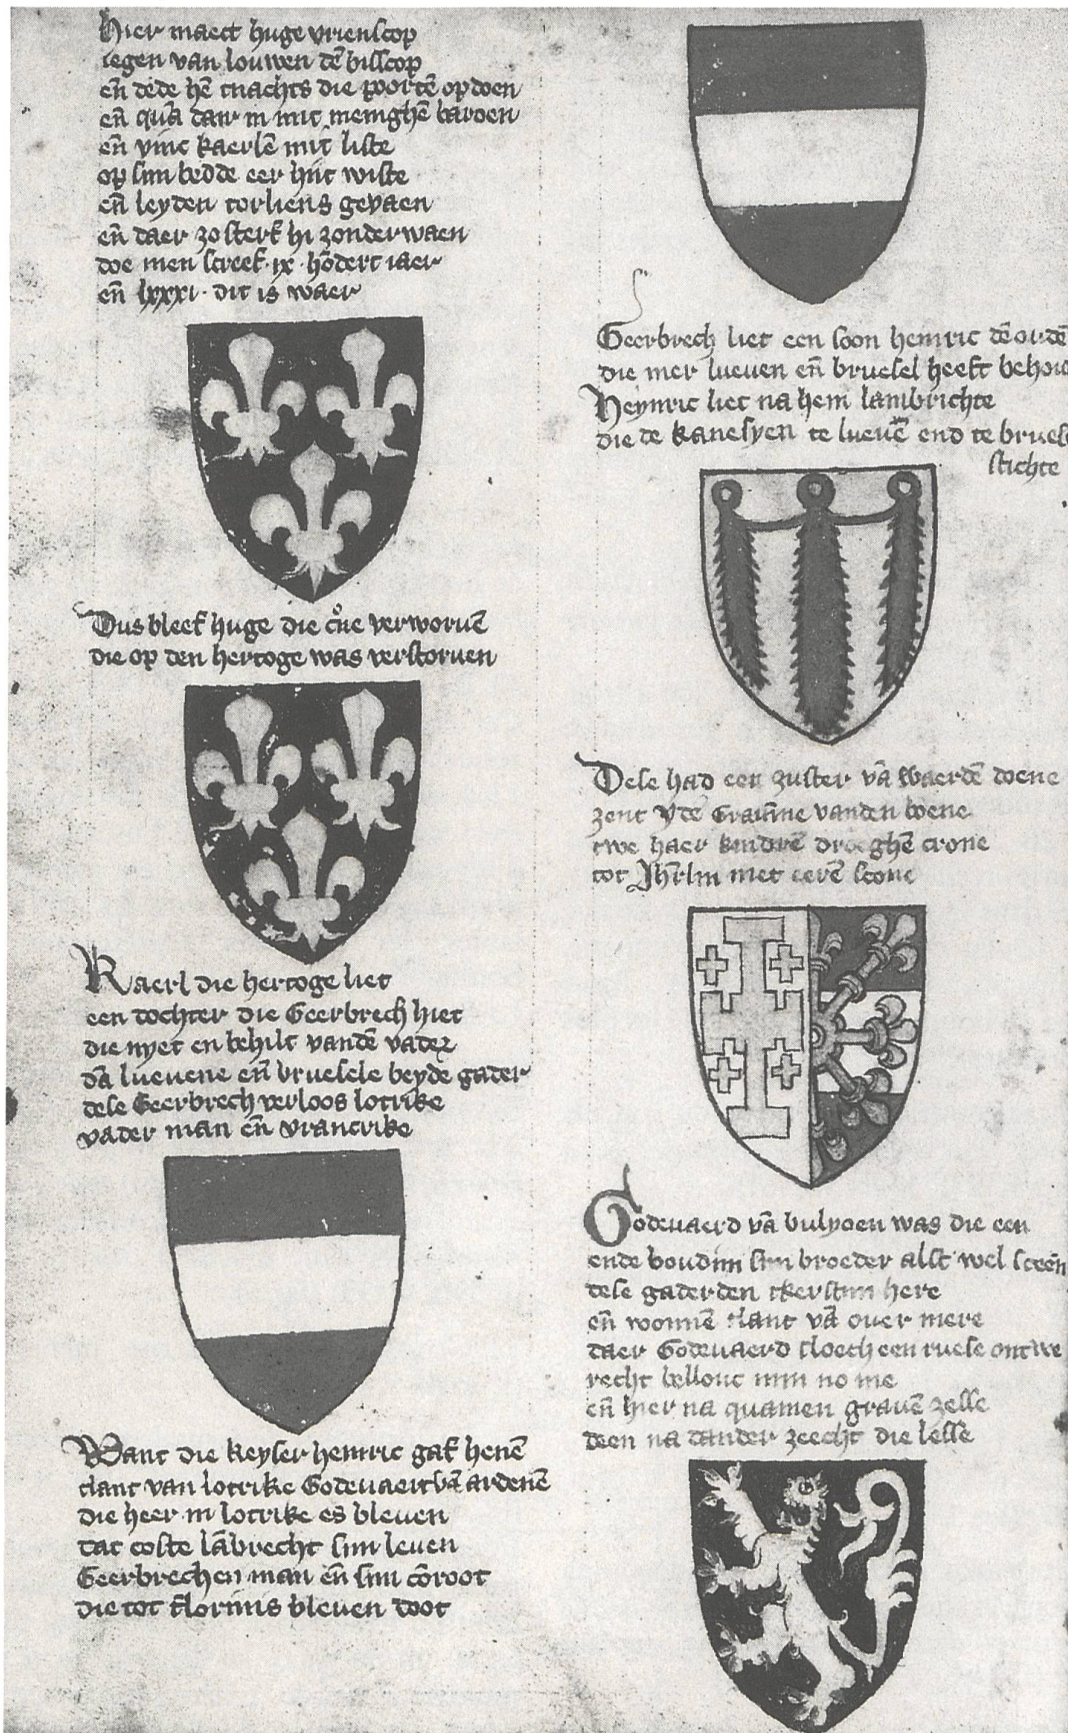 Hier maect huge vrienscop
iegen van louwen dē bisscop
eñ dede hē tnachts die poortē opdoen
eñ quā daer in mit menighē baroen
eñ vinc kaerlē mit liste
op sijn bedde eer hijt wiste
eñ leyden torliens gevaen
eñ daer zo sterf hi zonder waen
doe men screef · ix · hōdert iaer
eñ lxxxi · dit is waer
Dus bleef huge die crōe verworvē
die op den hertoge was verstorven
Kaerl die hertoge liet
een dochter die Geerbrech hiet
die nyet en behilt vandē vader
dā luevene eñ bruesele beyde gader
dese Geerbrech verloos lotrike
vader man eñ vrancrike
Want die keyser heinric gaf henē
tlant van lotrike Godevaert vā ardenē
die heer in lotrike es bleven
dat coste lābrecht sijn leven
Geerbrechen man eñ sijn cōroot
die tot florinis bleven doot
Geerbrech liet een soon heinric dē ordē
die mer lueven eñ bruesel heeft behou
Heynric liet na hem lambrichte
die de kanesyen te luevē end te bruesel
stichte
Dese had een zuster vā waerdē doene
zent yde Gravinne vanden boene
twe haer kindrē droeghē crone
tot Jhrlm met eerē scone
Godevaerd vā bulyoen was die een
ende boudijn sijn broeder alst wel sceen
dese gaderden tkerstijn here
eñ wonnē tlant vā over mere
daer Godevaerd sloech een ruese ontwe
recht bellouc min no me
eñ hier na quamen gravē zesse
deen na dander zeecht die lesse